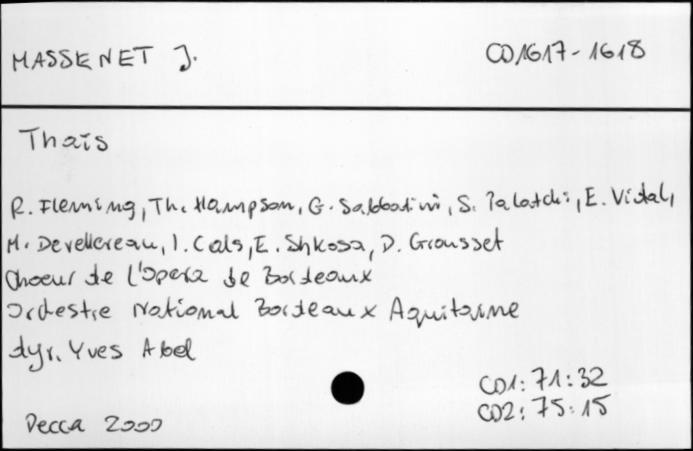 MASSENET J.
CD1617-1618
Thaïs
R. Fleming, Th. Hampson, G. Sabbatini, S. Palatchi, E. Vidal,
M. Devellereau, I. Cals, E. Shkosa, D. Grousset
Choeur de l'Opera de Bordeaux
Orchestre National Bordeaux Aquitaine
dyr. Yves Abel
CD1: 71:32
CD2: 75:15
Decca 2000